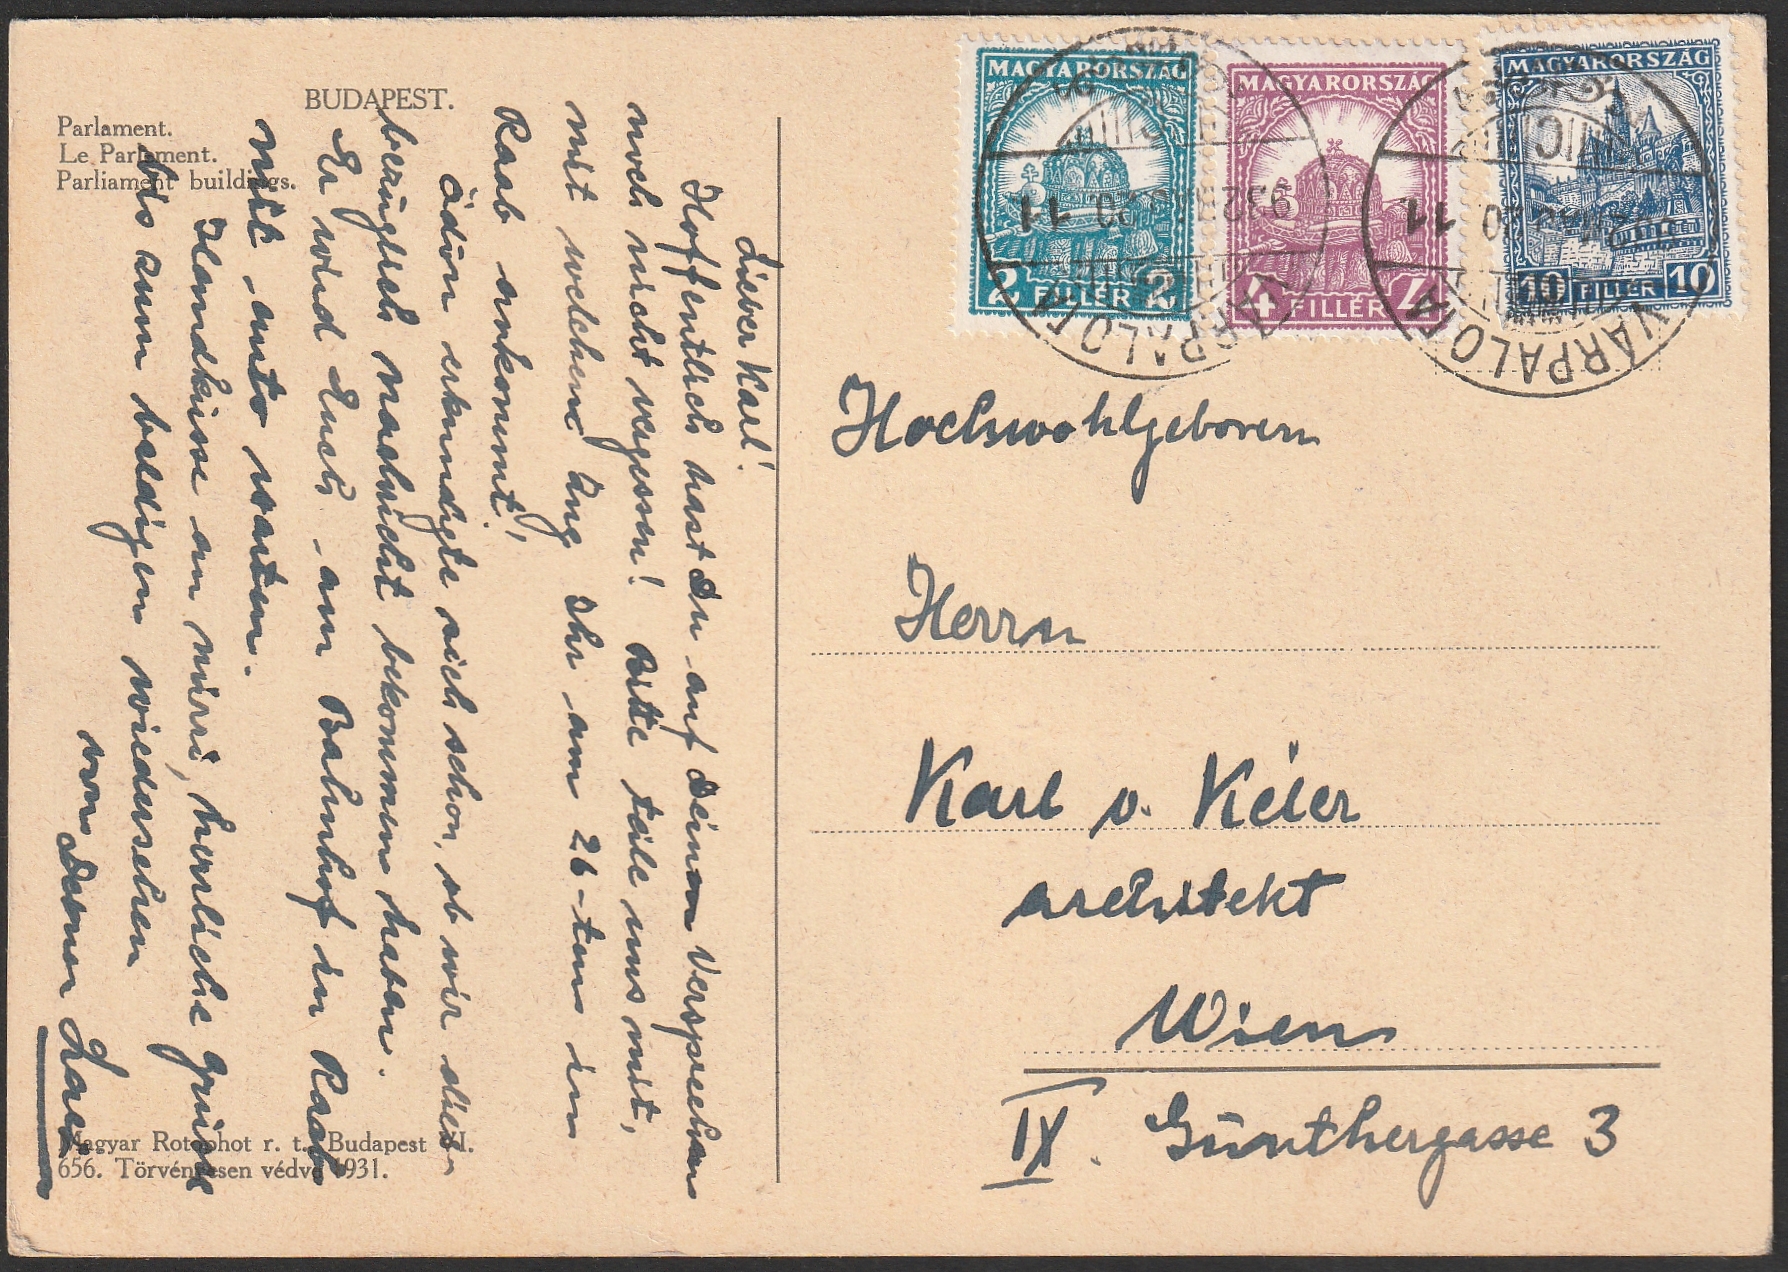 BUDAPEST.
Parlament.
Le Parlement.
Parliament buildings.
Lieber Karl!
Hoffentlich hast Du auf Deinem Versprechen
noch nicht vergessen! Bitte teile uns mit,
mit welchem Zug Ihr am 26-ten in
Raab ankommt,
Ödön erkundigte sich schon, ob wir dies
bezüglich Nachricht bekommen haben.
Er wird Euch am Bahnhof in Raab
mit Auto warten.
Handküsse an Mizzi, herzliche Grüsse
bis zum baldigen Wiedersehen
von Deiner
Magyar Rotophot r. t. Budapest VI.
656. Törvényesen védve 1931.
MAGYARORSZÁG
2 FILLÉR 2
MAGYARORSZÁG
4 FILLÉR 4
MAGYARORSZÁG
10 FILLÉR 10
VÁRPALOTA
932
11
VÁRPALOTA
11
Hochwohlgeboren
Herrn
Karl v. Kéler
architekt
Wien
IX. Günthergasse 3